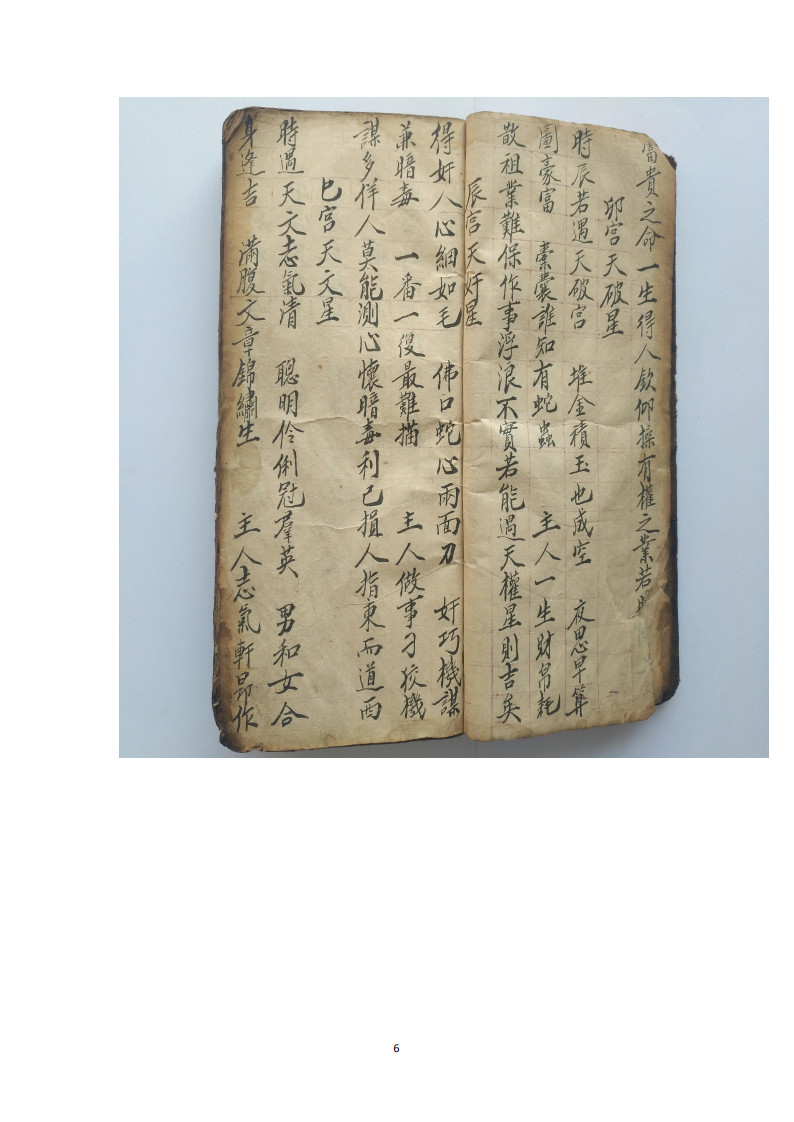 富貴之命一生得人欽仰操有權之業若
卯宫天破星
時辰若遇天破宫　堆金積玉也成空　夜思早算
圖豪富　橐囊誰知有蛇蟲　主人一生財帛耗
散祖業難保作事浮浪不實若能遇天權星則吉矣
辰宫天奸星
得奸人心細如毛　佛口蛇心兩面刀　奸巧機謀
兼暗毒　一番一復最難描　主人做事刁狡機
謀多佯人莫能測心懷暗毒利己損人指東而道西
巳宫天文星
時遇天文志氣清　聰明伶俐冠羣英　男和女合
身逢吉　滿腹文章錦繡生　主人志氣軒昂作
6